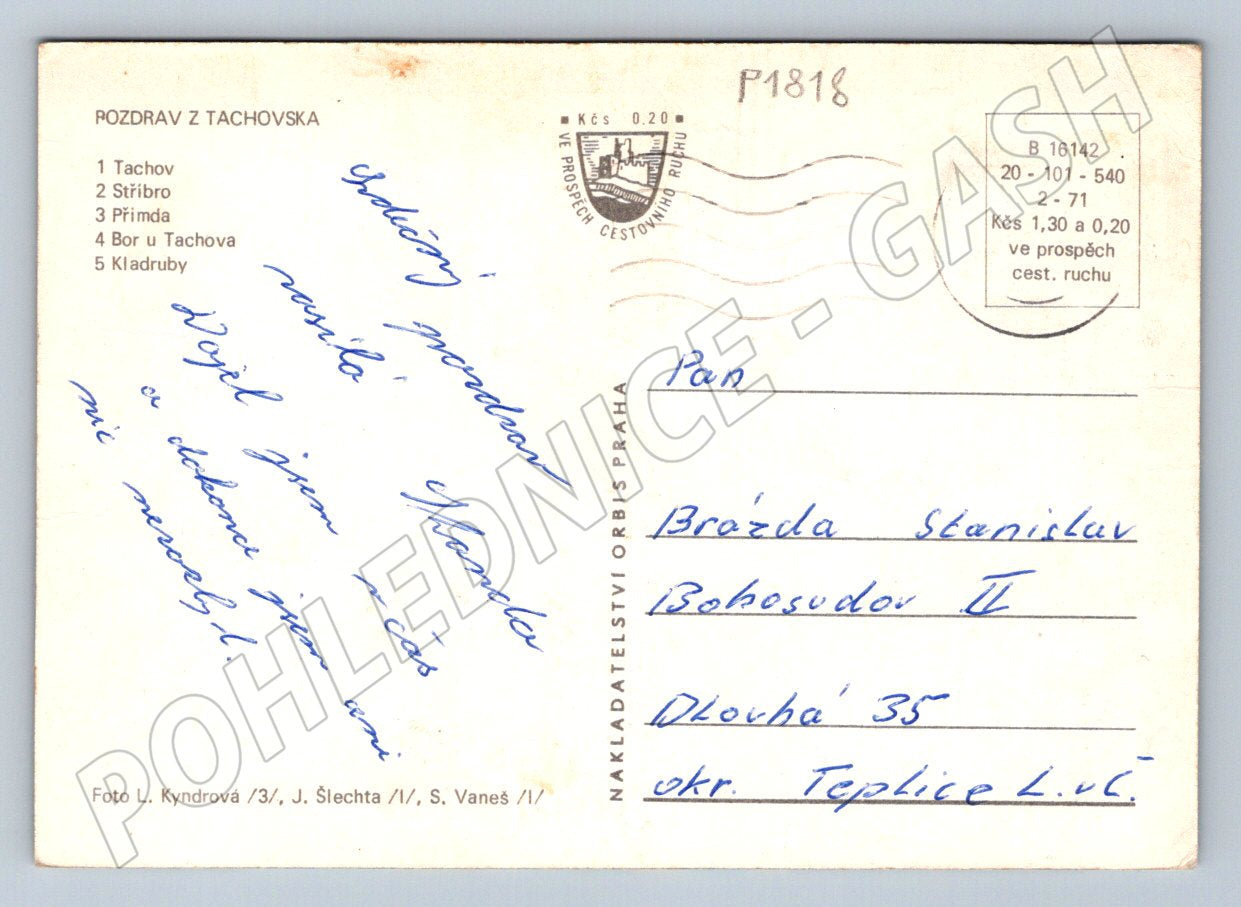 P1818
POZDRAV Z TACHOVSKA
1 Tachov
2 Stříbro
3 Přimda
4 Bor u Tachova
5 Kladruby
■ Kčs 0.20 ■
VE PROSPĚCH CESTOVNÍHO RUCHU
B 16142
20 - 101 - 540
2 - 71
Kčs 1,30 a 0,20
ve prospěch
cest. ruchu
Srdečný pozdrav
zasílá
Standa
Dojel jsem včas
a dokonce jsem ani
nic nerozbyl.
NAKLADATELSTVÍ ORBIS PRAHA
Pan
Brázda Stanislav
Bohosudov II
Dlouhá 35
okr. Teplice L.v Č.
Foto L. Kyndrová /3/, J. Šlechta /I/, S. Vaneš /I/
POHLEDNICE - GASH